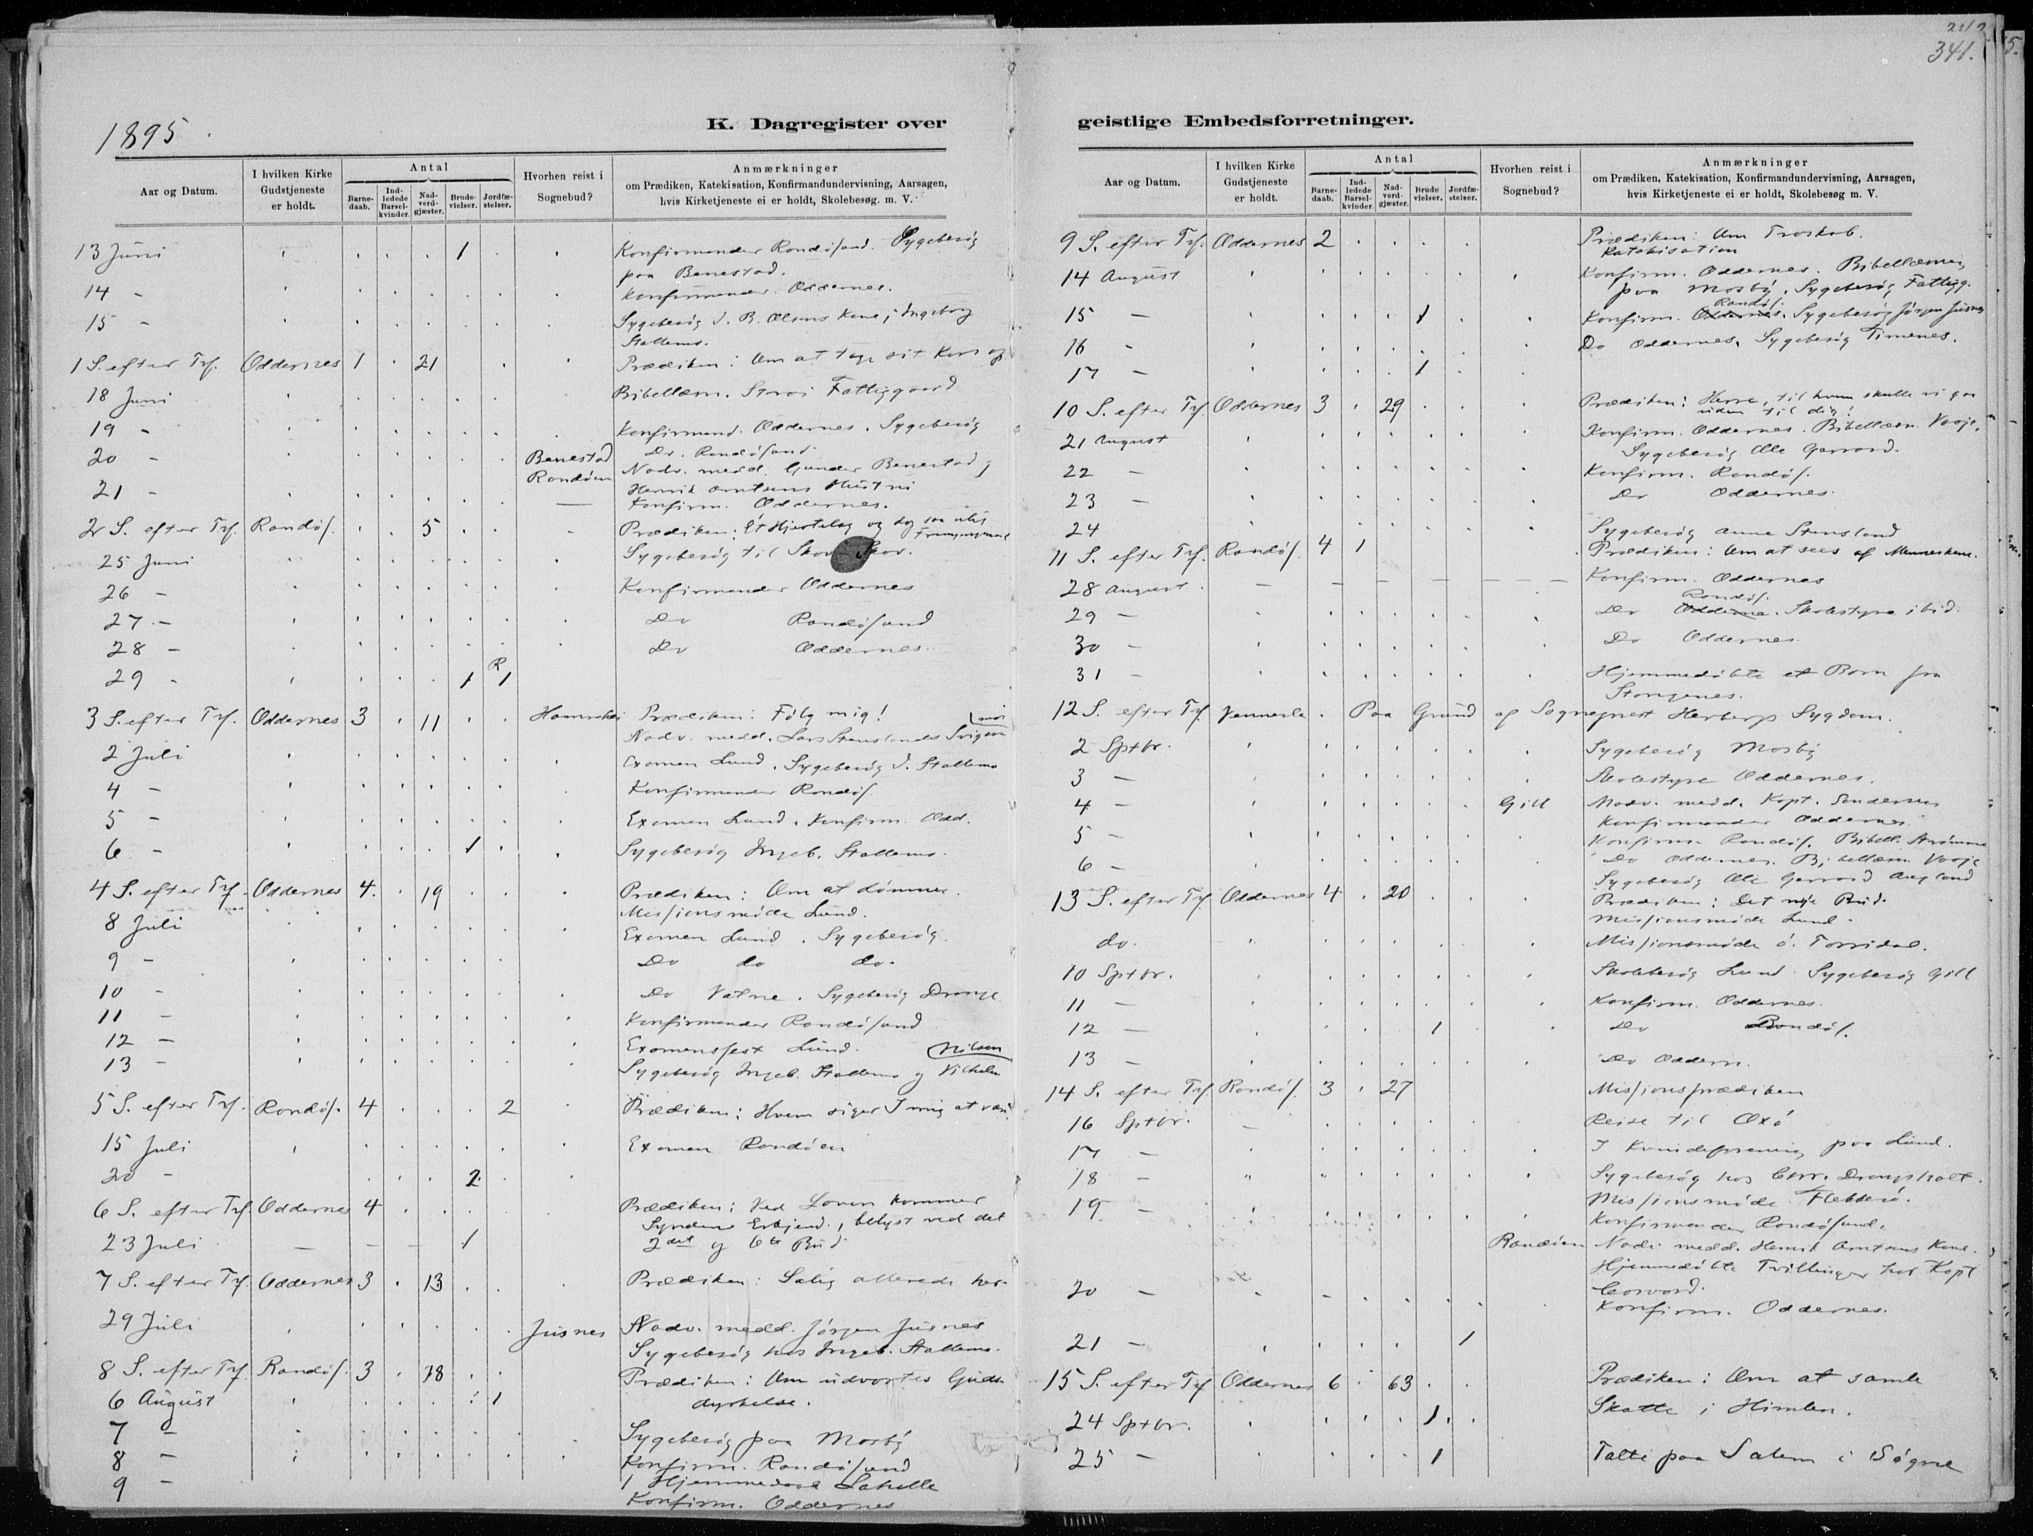 2212
341.
5.
1895.
K. Dagregister over
geistlige Embedsforretninger.
Aar og Datum.
I hvilken Kirke Gudstjeneste er holdt.
Antal
Barne-daab.
Ind-ledede Barsel-kvinder.
Nad-verd-gjæster.
Brude-vielser.
Jordfæ-stelser.
Hvorhen reist i Sognebud?
Anmærkninger
om Prædiken, Katekisation, Konfirmandundervisning, Aarsagen,
hvis Kirketjeneste ei er holdt, Skolebesøg. m. V.
13 Juni 1 Konfirmander Randøsund. Sygebesøg
paa Benestad.
14 - Konfirmander Oddernes.
15 - Sygebesøg J. B. Olsens Kone, Ingeborg
Stallems.
1 S. efter Trf. Oddernes 1 21 Prædiken: Om at tage sit Kors op
18 Juni Bibellæsn. Strai Fattiggaard
19 - Konfirmand. Oddernes. Sygebesøg
20 - Benestad Do. Randøsund.
Randøen Nadv. medd. Gunder Benestad og
21 - Henrik Arntsens Hustru
Konfirm. Oddernes.
2 S. efter Trf. Randøs. 5 Prædiken: Et Hjertelag og dog saa ulig
25 Juni Sygebesøg til Skov
26 - Konfirmander Oddernes
27 - Do Randøsund
28 - Do Oddernes
29 - 1 R 1
3 S. efter Trf. Oddernes 3 11 Prædiken: Følg mig!
Nadv. medd. Lars Stenslands Sviger
mor
2 Juli Examen Lund. Sygebesøg J. Stallems
4 - Konfirmander Randøs.
5 - Examen Lund. Konfirm. Odd.
6 - 1 Sygebesøg Ingeb. Stallems.
4 S. efter Trf. Oddernes 4. 19 Prædiken: Om at dømme.
Missionsmøde Lund.
8 Juli Examen Lund. Sygebesøg.
9 - Do do do.
10 - Do Vatne. Sygebesøg
11 - Konfirmander Randøsund
12 - Examensfest Lund.
Nilsen
13 - Sygebesøg Ingeb. Stallems og Vilhelm
5 S. efter Trf. Randøs. 4 2 Prædiken: Hvem siger I mig at være
15 Juli Examen Randøen
20 - 2
6 S. efter Trf. Oddernes 4 Prædiken: Ved Loven kommer
Syndens Erkjend., belyst ved det
23 Juli 1 2det og 6te Bud
7 S. efter Trf. Oddernes 3 13 Prædiken: Salig allerede her.
29 Juli Jusnes Nadv. medd. Jørgen Jusnes
Sygebesøg hos Ingeb. Stallems.
8 S. efter Trf. Randøs. 3 18 Prædiken: Om udvortes Guds-
6 August 1 dyrkelse.
7 - Sygebesøg paa Mosby
8 - Konfirm. Randøsund
9 - 1 Hjemmedaab
Konfirm. Oddernes
Aar og Datum.
I hvilken Kirke Gudstjeneste er holdt.
Antal
Barne-daab.
Ind-ledede Barsel-kvinder.
Nad-verd-gjæster.
Brude vielser.
Jordfæ-stelser.
Hvorhen reist i Sognebud?
Anmærkninger
om Prædiken, Katekisation, Konfirmandundervisning, Aarsagen,
hvis Kirketjeneste ei er holdt, Skolebesøg m. V.
9 S. efter Trf. Oddernes 2 Prædiken: Om Troskab.
Katekisation
14 August Konfirm. Oddernes. Bibellæsning
paa Mosby. Sygebesøg Fattigg.
Randøs.
15 - 1 Konfirm. Oddernes. Sygebesøg Jørgen Jusnes
16 - Do Oddernes. Sygebesøg Timenes.
17 - 1
10 S. efter Trf Oddernes 3 29 Prædiken: Herre, til hvem skulle vi gaa
uden til dig!
21 August Konfirm. Oddernes. Bibellæsn. Vaaje.
Sygebesøg Ole Gerrard.
22 - Konfirm. Randøs.
23 - Do Oddernes.
24 Sygebesøg Anne Stensland
11 S. efter Trf. Randøs. 4 1 Prædiken: Om at sees af Menneskene.
28 August. Konfirm. Oddernes
Randøs.
29 - Do Oddernes. Skolestyre ibid.
30 - Do Oddernes.
31 - Hjemmedøbte et Barn fra
12 S. efter Trf Vennesla. Paa Grund af Sognepræst Herbergs Sygdom.
2 Sptbr. Sygebesøg Mosby
3 - Skolestyre Oddernes.
4 - Gill Nadv. medd. Kapt.
Konfirmander Oddernes
5 - Konfirm. Randøs. Bibell. Strømme
6 - Do Oddernes. Bibellæsn. Vaaje
Sygebesøg Ole Gerrard
13 S. efter Trf. Oddernes 4 20 Prædiken: Det nye Bud.
Missionsmøde Lund.
do. Missionsmøde ø. Torridal.
10 Sptbr. Skolebesøg Lund. Sygebesøg Gill
11 - Konfirm. Oddernes.
12 - 1 Do Randøs.
13 - Do Oddern.
14 S. efter Trf. Randøs. 3 27 Missionsprædiken
16 Sptbr. Reise til Oxø
17 - I Kvindeforening paa Lund.
18 - " Sygebesøg hos Chr. Drangsholt.
19 - Missionsmøde Flekkerø.
Konfirmander Randøsund.
Randøen Nadv. medd. Henrik Arntsens Kone.
Hjemmedøbte Tvillinger hos Kapt
20 -
Konfirm. Oddernes.
21 - 1
15 S. efter Trf Oddernes 6 63 Prædiken: Om at samle
24 Sptbr. 1 Skatte i Himlen.
25 - 1 Talte paa Salem i Søgne